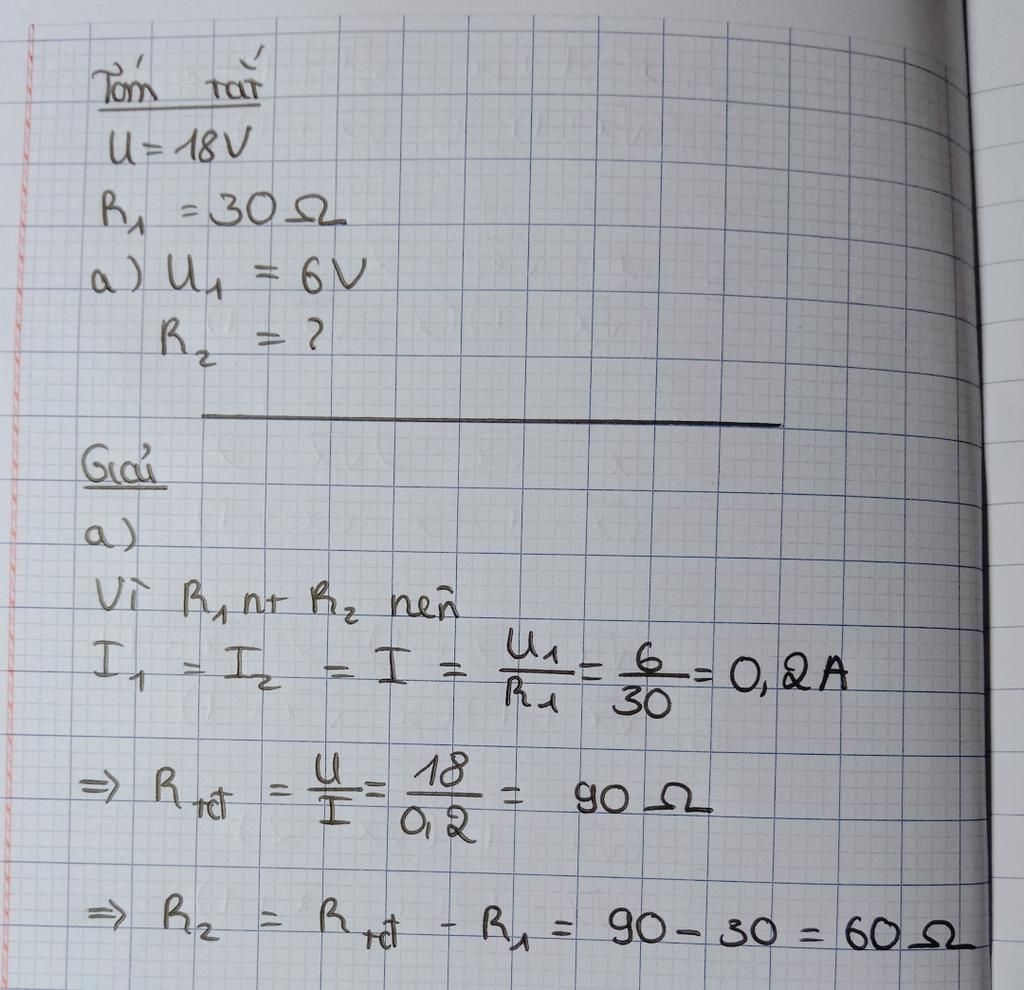 Tóm tắt
U = 18V
R₁ = 30 Ω
a) U₁ = 6V
R₂ = ?
Giải
a)
Vì R₁ nt R₂ nên
I₁ = I₂ = I = U₁/R₁ = 6/30 = 0,2A
⇒ R_tđ = U/I = 18/0,2 = 90 Ω
⇒ R₂ = R_tđ - R₁ = 90 - 30 = 60 Ω